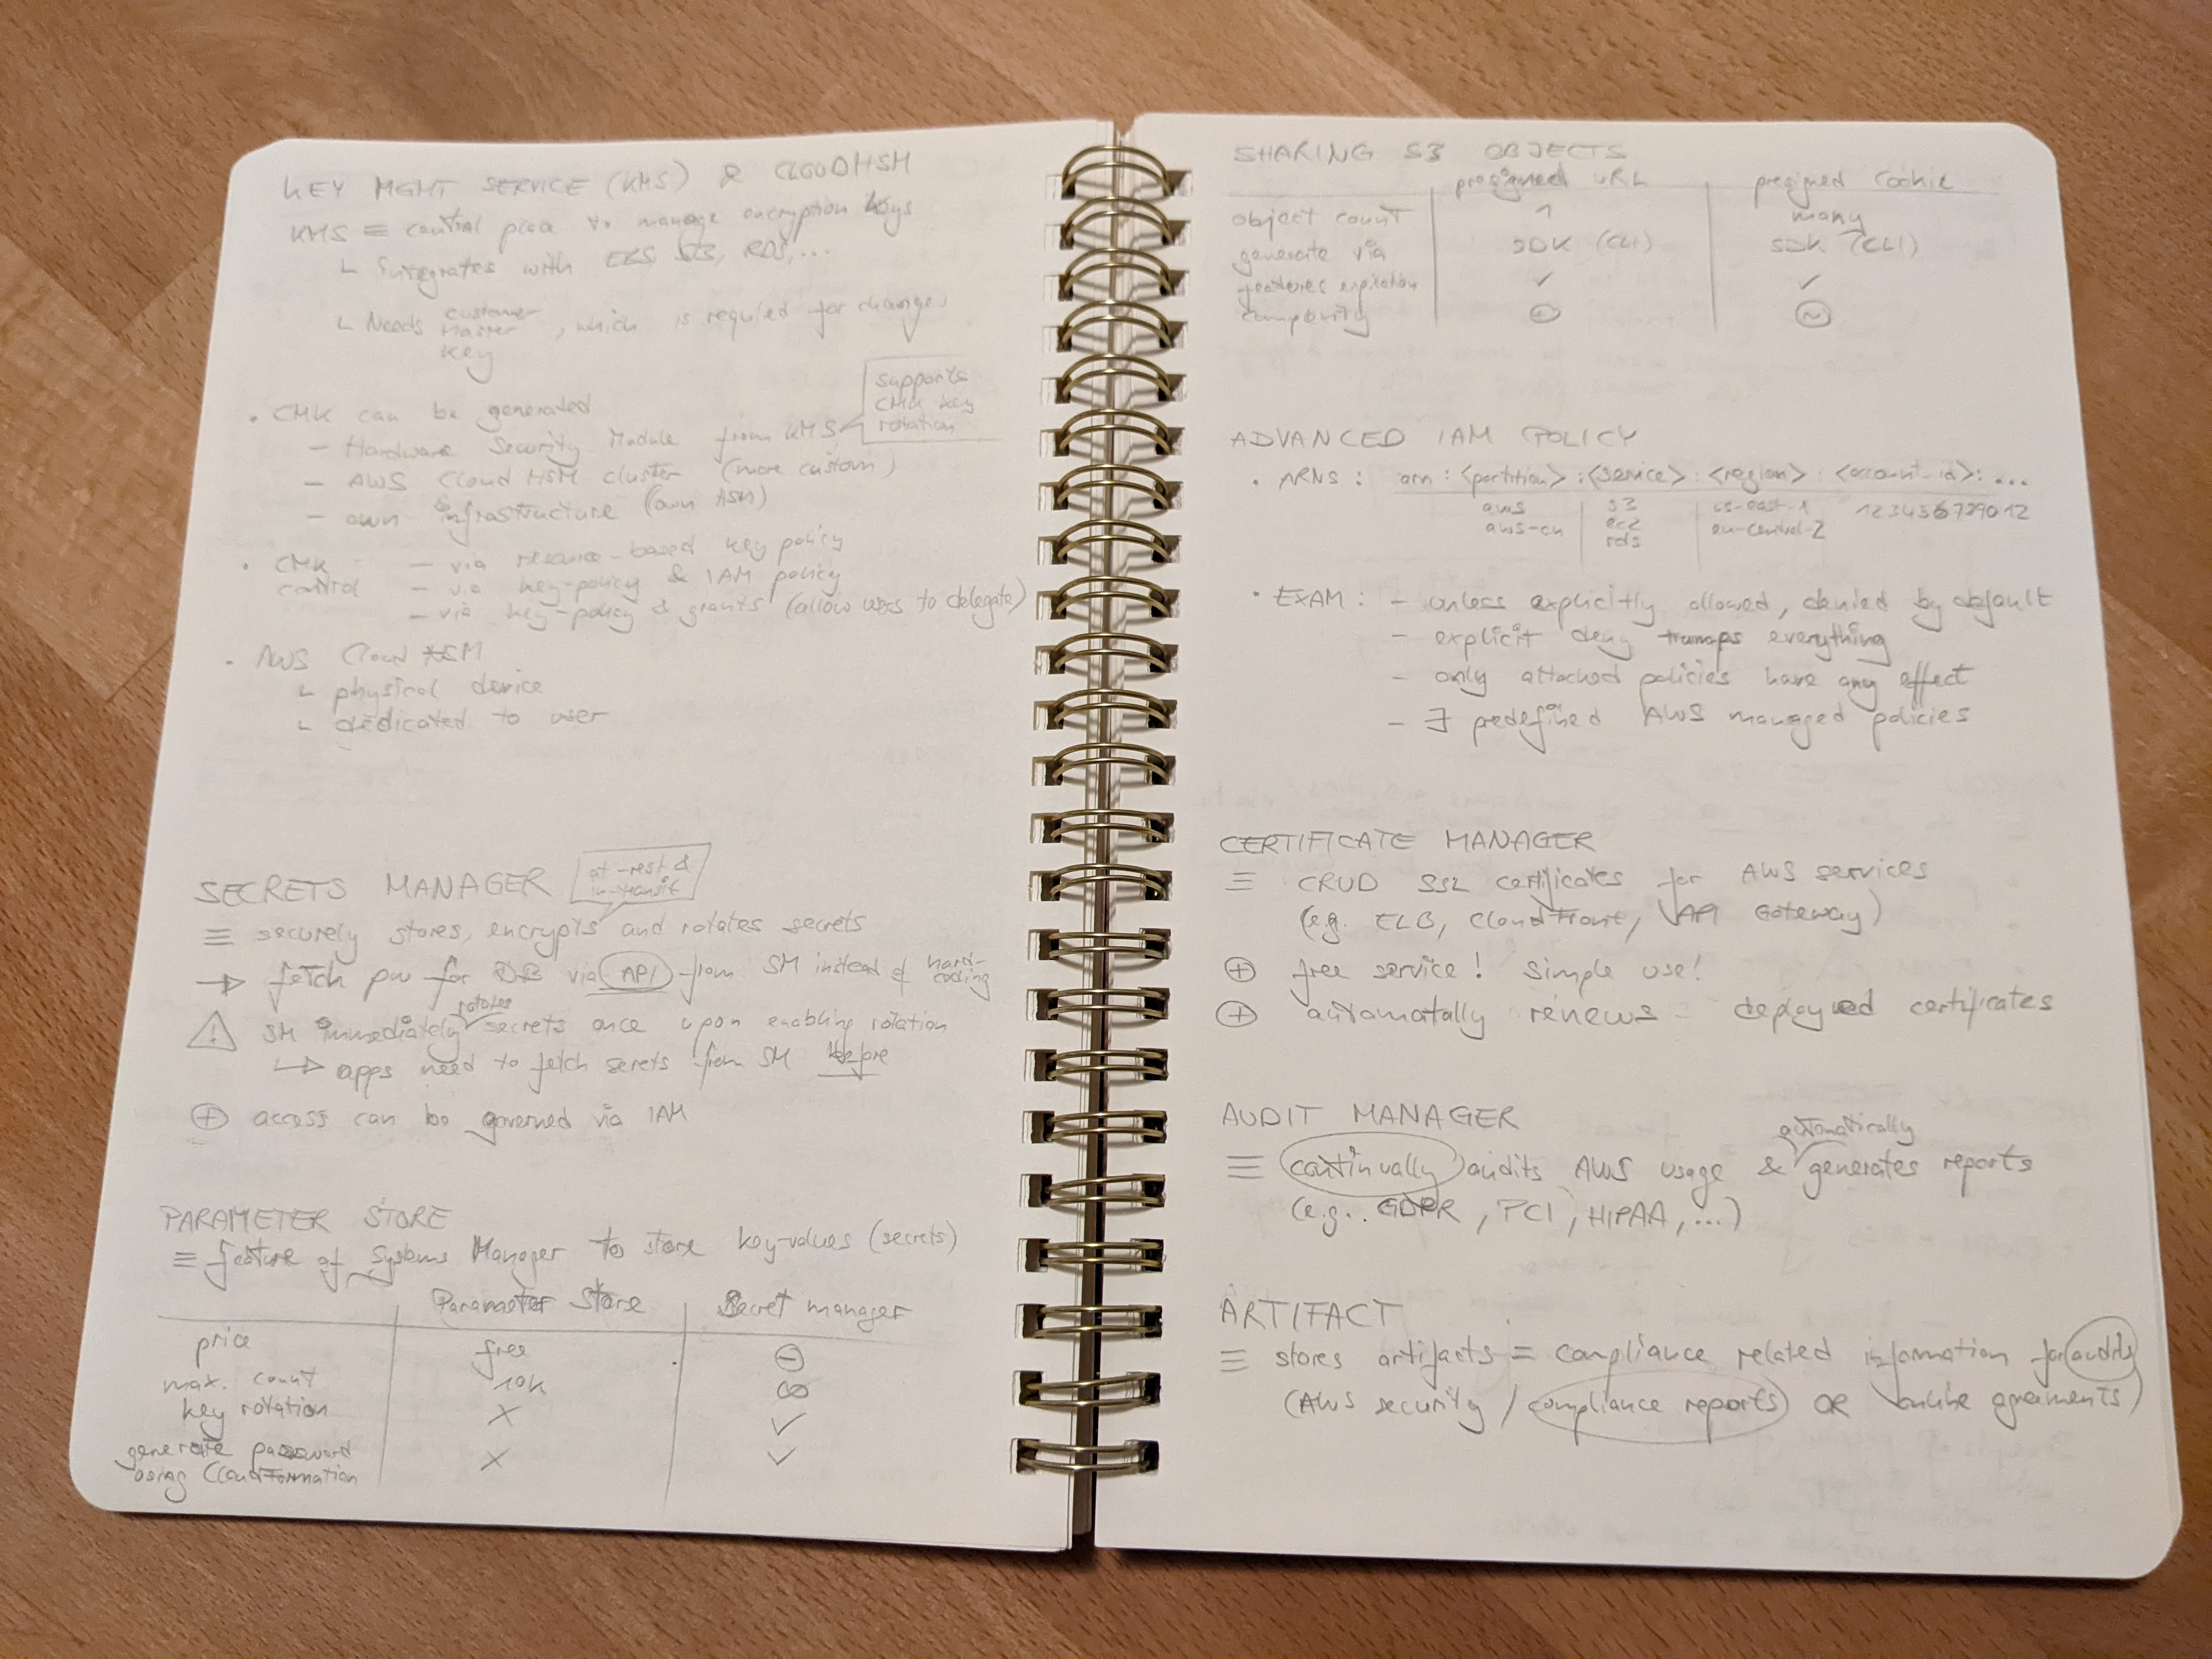 KEY MGMT SERVICE (KMS) & CLOUDHSM
KMS ≡ central place to manage encryption keys
└ integrates with EBS, S3, RDS, ...
└ Needs customer master key, which is required for changes
supports
CMK key
rotation
• CMK can be generated
– Hardware Security Module from KMS
– AWS Cloud HSM cluster (more custom)
– own infrastructure (own HSM)
• CMK control – via resource-based key policy
– via key-policy & IAM policy
– via key-policy & grants (allow users to delegate)
• AWS Cloud HSM
└ physical device
└ dedicated to user
SECRETS MANAGER
at-rest &
in-transit
≡ securely stores, encrypts and rotates secrets
→ fetch pw for DB via API from SM instead of hard-coding
⚠ SM immediately rotates secrets once upon enabling rotation
↳ apps need to fetch serets from SM before
⊕ access can be governed via IAM
PARAMETER STORE
≡ feature of Systems Manager to store key-values (secrets)
Parameter Store | Secret manager
price | free | ⊖
max. count | 10K | ∞
key rotation | ✗ | ✓
generate password using CloudFormation | ✗ | ✓
SHARING S3 OBJECTS
presigned URL | presigned cookie
object count | 1 | many
generate via | SDK (CLI) | SDK (CLI)
features expiration | ✓ | ✓
complexity | ⊕ | ~
ADVANCED IAM POLICY
• ARNS : arn : <partition> : <service> : <region> : <account-id> : ...
aws | s3 | us-east-1 123456789012
aws-cn | ec2 | eu-central-2
rds
• EXAM : – unless explicitly allowed, denied by default
– explicit deny trumps everything
– only attached policies have any effect
– ∃ predefined AWS managed policies
CERTIFICATE MANAGER
≡ CRUD SSL certificates for AWS services
(e.g. ELB, CloudFront, API Gateway)
⊕ free service! Simple use!
⊕ automatally renews deployed certificates
AUDIT MANAGER
≡ continually audits AWS usage & automatically generates reports
(e.g.. GDPR, PCI, HIPAA, ...)
ARTIFACT
≡ stores artifacts = compliance related information for audits
(AWS security / compliance reports) OR online agreements)